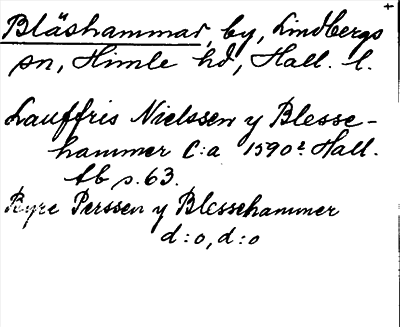 Bläshammar, by, Lindbergs
sn, Himle hd, Hall. l.
Lauffris Nielssen y Blesse-
hammer C:a 1590? Hall.
tb s. 63.
Byre Perssen y Blessehammer
d:o, d:o